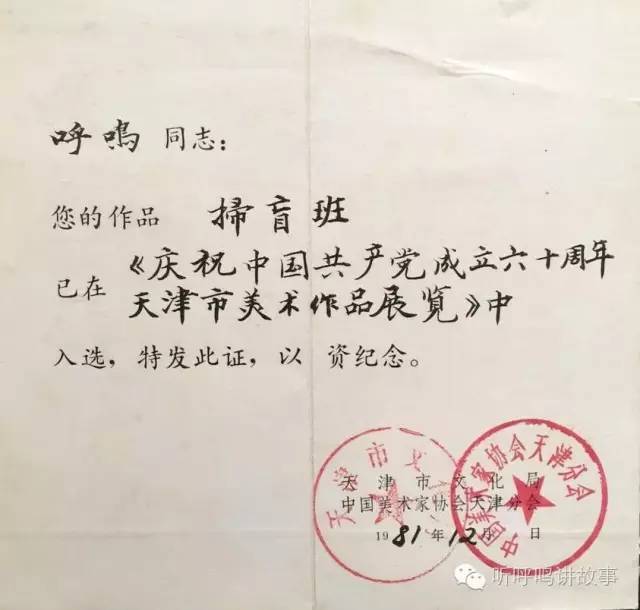 呼鸣 同志：
您的作品 掃盲班
已在 《庆祝中国共产党成立六十周年
天津市美术作品展览》中
入选，特发此证，以 资纪念。
天津市文化局
中国美术家协会天津分会
1981年12月 日
天津市文
中国美术家协会天津分会
听呼鸣讲故事